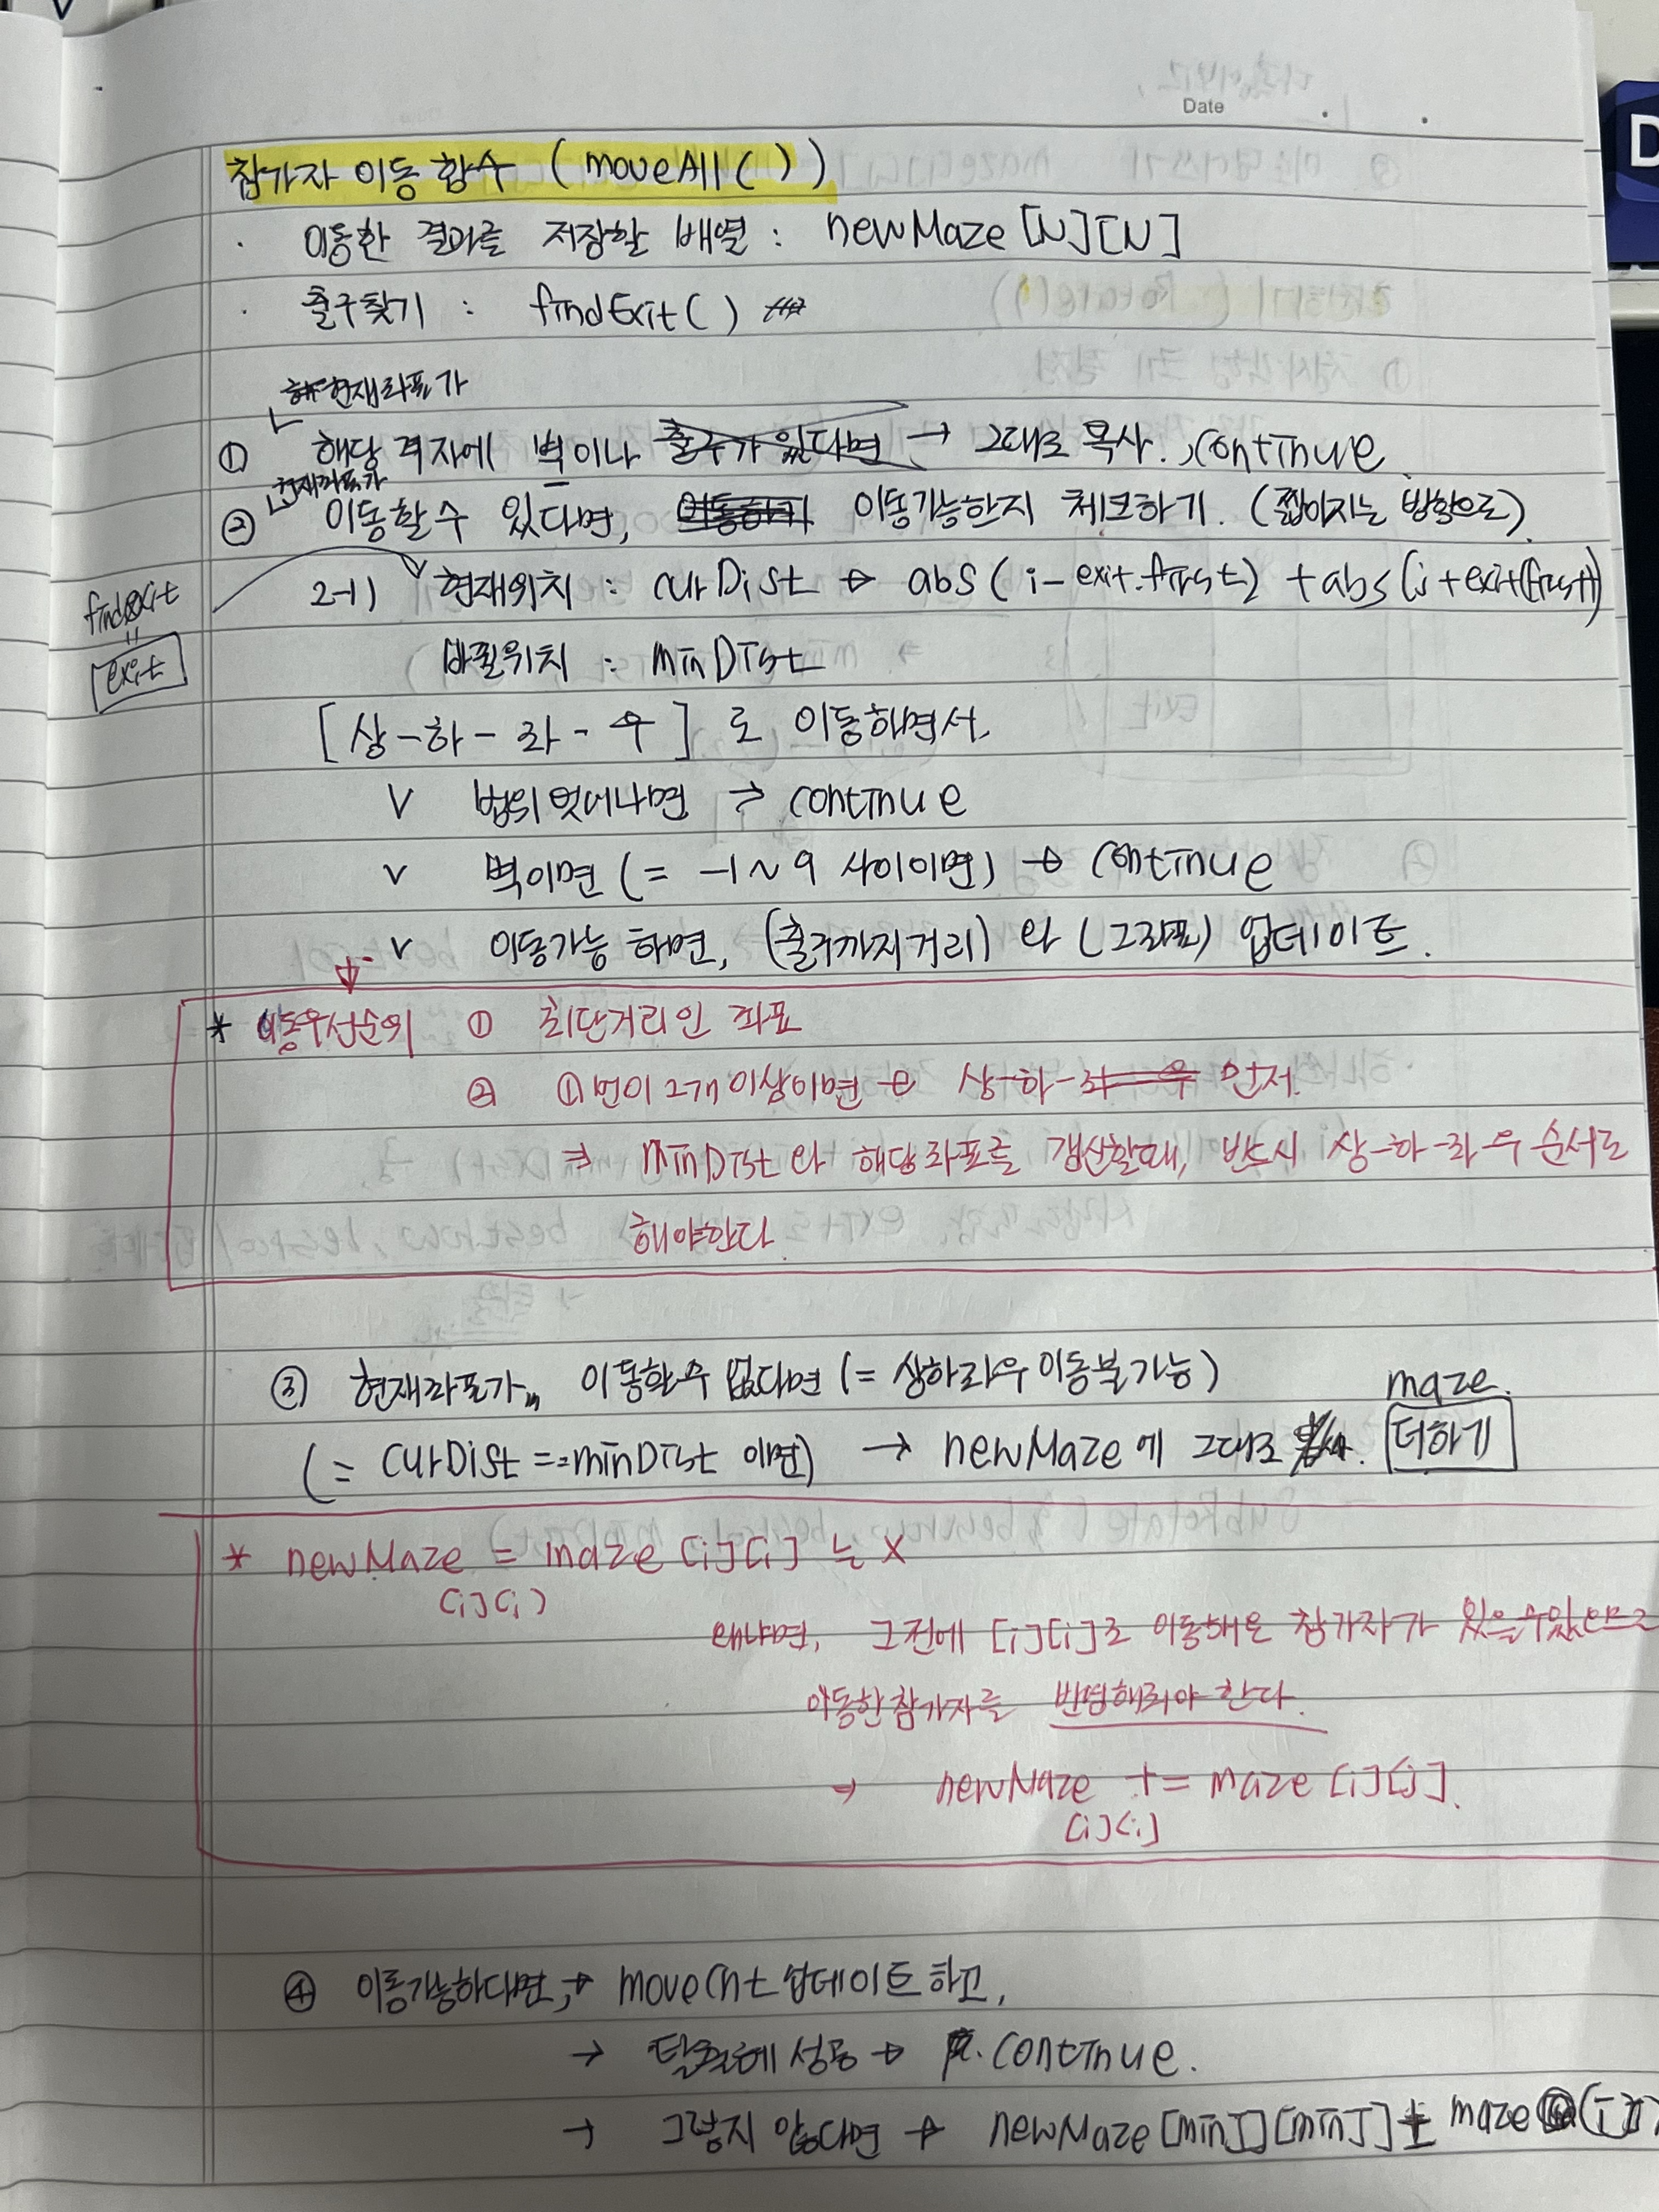 Date
참가자 이동 함수 (moveAll())
· 이동한 결과를 저장할 배열 : newMaze[N][N]
· 출구찾기 : findExit()
현재좌표가
① 해당 격자에 벽이나 출구가 있다면 → 그대로 복사. continue.
현재좌표가
② 이동할 수 있다면, 이동하기 이동가능한지 체크하기. (짧아지는 방향으로)
findExit
=
exit
2-1) 현재위치 : curDist → abs(i-exit.first) + abs(j+exit(first))
바뀐위치 : minDist
[상-하-좌-우] 로 이동하면서
V 범위 벗어나면 → continue
V 벽이면 (= -1~9 사이이면) → continue
V 이동가능 하면, (출구까지거리) 와 (그좌표) 업데이트.
* 이동우선순위 ① 최단거리인 좌표
② ①번이 2개 이상이면 → 상-하-좌-우 먼저.
⇒ minDist 와 해당좌표를 갱신할때, 반드시 상-하-좌-우 순서로
해야한다.
③ 현재좌표가 이동할수 없다면 (= 상하좌우 이동불가능)
maze.
(= curDist == minDist 이면) → newMaze 에 그대로 더하기
* newMaze = maze[i][j] 는 X
[i][j]
왜냐면, 그전에 [i][j]로 이동해온 참가자가 있을수있으므로
이동한참가자를 반영해줘야 한다.
→ newMaze += maze[i][j].
[i][j]
④ 이동가능하다면, → moveCnt 업데이트 하고,
→ 탈출에 성공 → continue.
→ 그렇지 않다면 → newMaze[minI][minJ] += maze